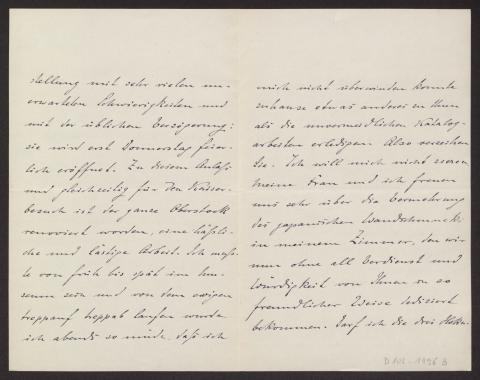 stellung mit sehr vielen un-
erwarteten Schwierigkeiten und
mit der üblichen Verzögerung:
sie wird erst Donnerstag feier-
lich eröffnet. Zu diesem Anlass
und gleichzeitig für den Kaiser-
besuch ist der ganze Oberstock
renoviert worden, eine hässli-
che und lästige Arbeit. Ich muss-
te von früh bis spät im Mu-
seum sein und von dem ewigen
treppauf treppab laufen wurde
ich abends so müde, dass ich
mich nicht überwinden konnte
zuhause etwas anderes zu thun
als die unvermeidlichen Katalog-
arbeiten erledigen. Also verzeihen
Sie. Ich will mich nicht
Meine Frau und ich freuen
uns sehr über die Vermehrung
des japanischen Wandschmucks
in meinem Zimmer, den wir
nun ohne all Verdienst und
Würdigkeit von Ihnen in so
freundlicher Weise dediziert
bekommen. Darf ich die drei Hoku-
D AK - 1996 B